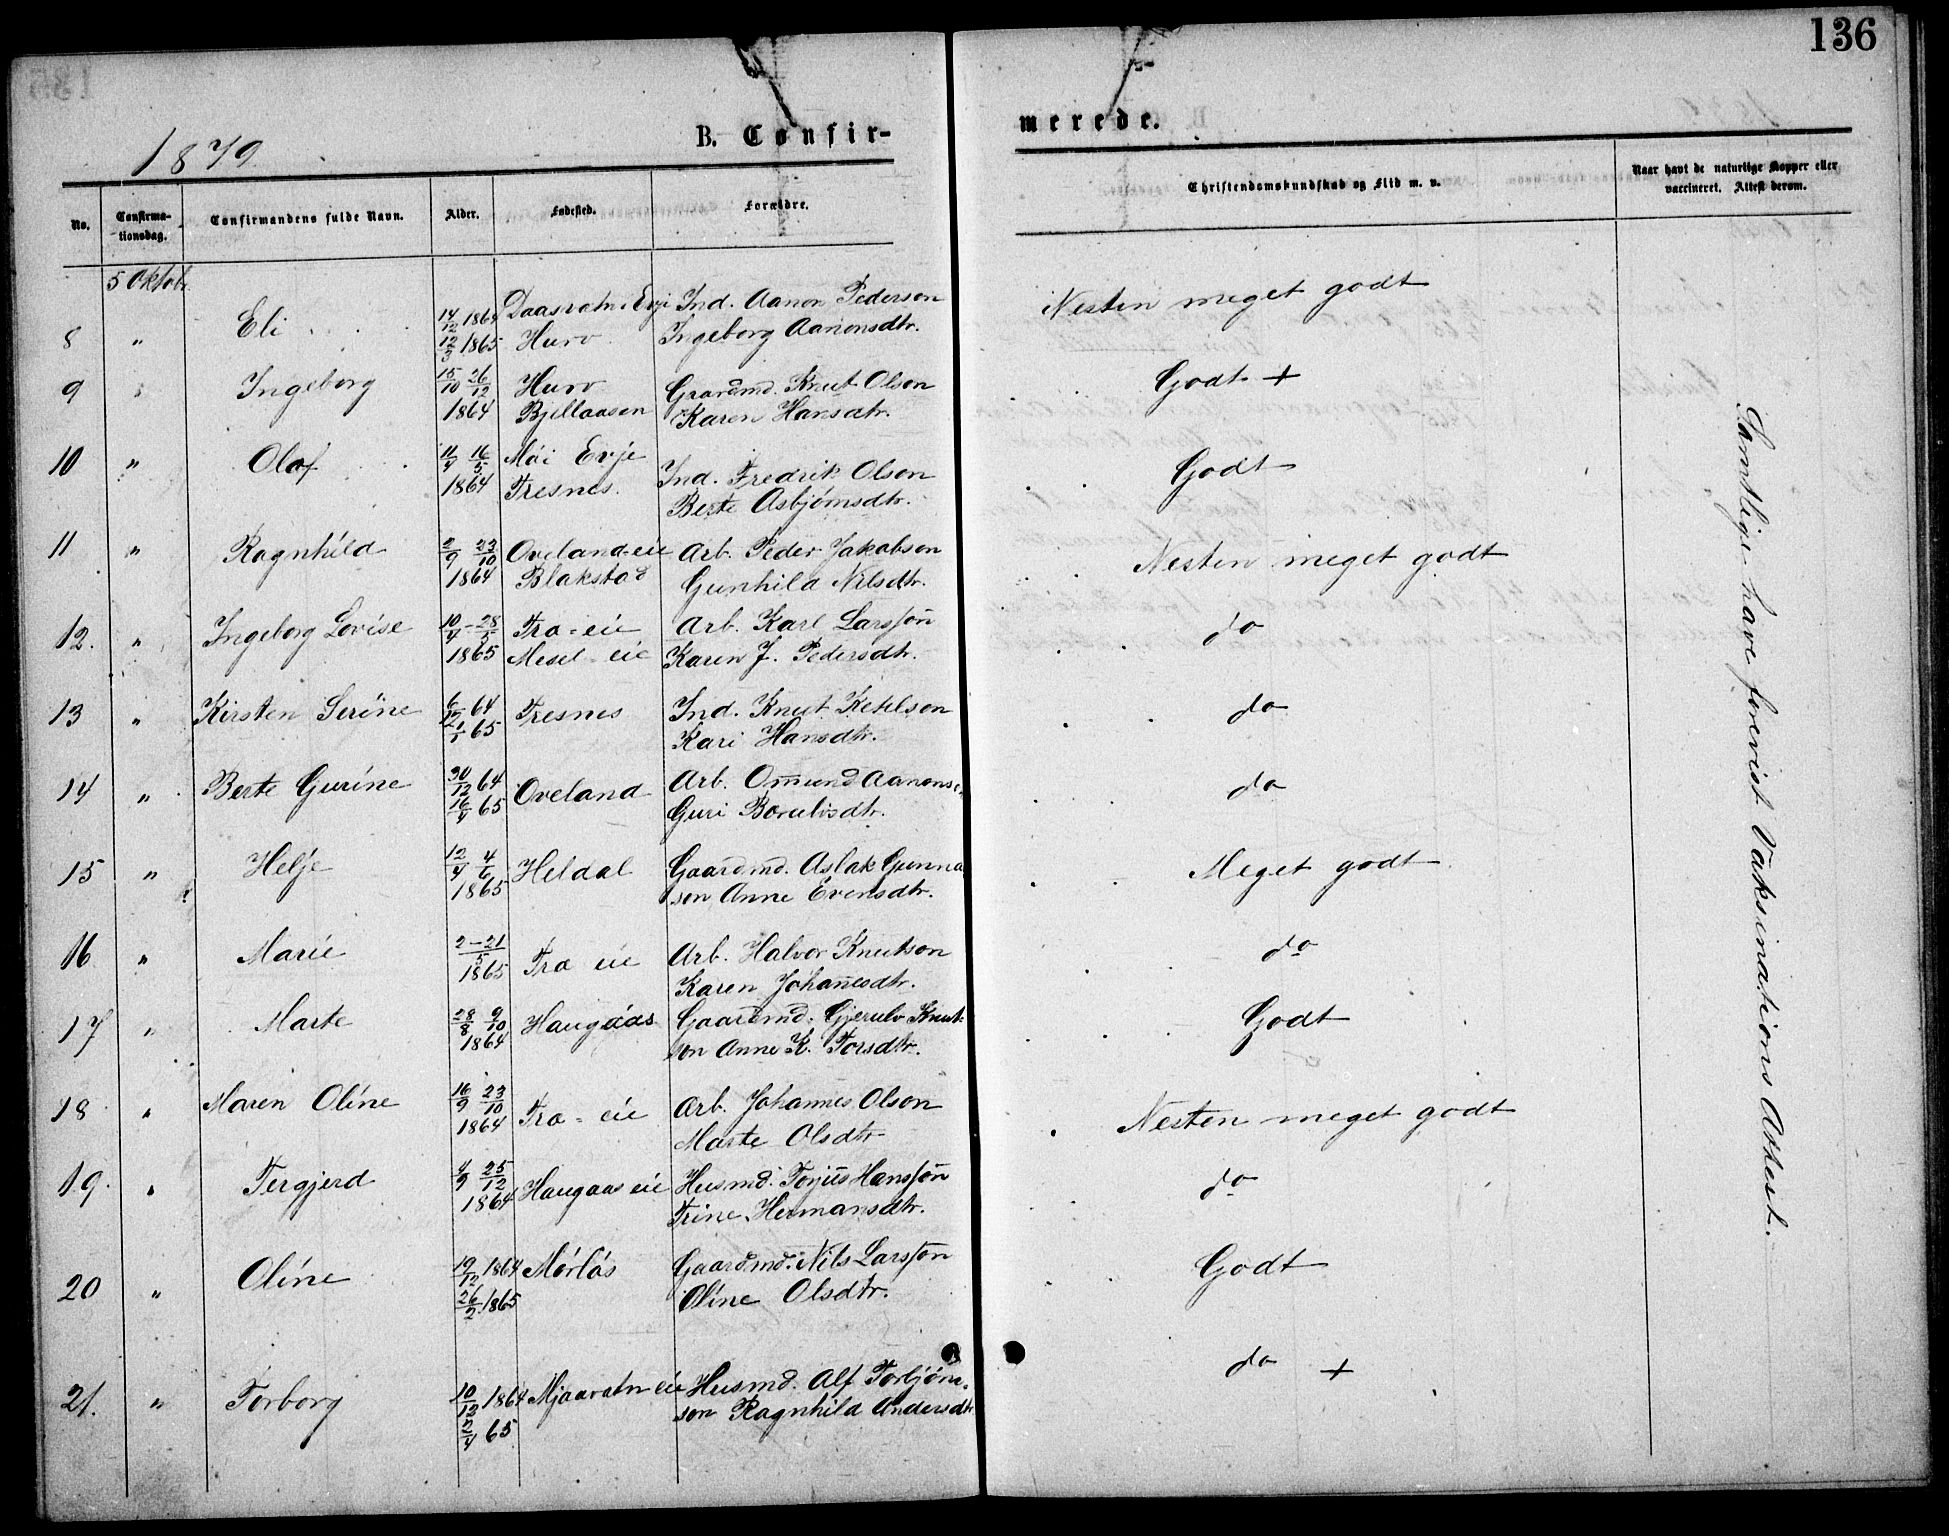 136
1879.
B. Confir-
merede.
No.
Confirma-
tionsdag.
Confirmandens fulde Navn.
Alder.
Fødested.
Forældre.
Christendomskundskab og Flid m. v.
Naar havt de naturlige Kopper eller
vaccineret. Attest derom.
5 Oktobr.
8 " Eli 14/12 1864 Daasvatn i Evje Ind. Aanon Pederson Nesten meget godt
12/3 1865 Hurv Ingeborg Aanonsdtr.
9 " Ingeborg 15/10 26/12 Hurv Gaardmd. Knut Olson Godt +
1864 Bjellaasen Karen Hansdtr.
10 " Olaf 11/4 16/5 Mói Evje Ind. Fredrik Olson Godt
1864 Tresnes. Berte Asbjórnsdtr.
11 " Ragnhild 2/9 23/10 Oveland-eie Arb. Peder Jakobson Nesten meget godt
1864 Blakstad Gunhild Nilsdtr.
12. " Ingeborg Lovise 10/4 - 28/5 Tra-eie Arb. Karl Larsson do
1865 Mesel-eie Karen J. Pedersdtr.
13 " Kirsten Serine 6/12 64 Tresnes Ind. Knut Ketilson do
1/1 65 Kari Hansdtr.
14 " Berte Gurine 30/12 64 Oveland Arb. Omund Aanonsen do
16/4 65 Guri Borulvsdtr.
15 " Helje 12/4 4/6 Heldal Gaardmd. Aslak Gunna Meget godt
1865 son Anne Evensdtr.
16 " Marie 2-21/5 Tra eie Arb. Halvor Knutson do
1865 Karen Johanesdtr.
17 " Marte 28/8 9/10 Haugáas Gaardmd. Gjerulv Knut- Godt
1864 son Anne K. Torsdtr.
18 " Maren Oline 16/9 23/10 Tra-eie Arb. Johannes Olson Nesten meget godt
1864 Marte Olsdtr
19. " Tergjerd 4/9 25/12 Haugaas eie Husmd. Torjus Hansson do
1864 Trine Hermansdtr.
20 " Oline 19/12 1864 Mórlós Gaardmd. Nils Larsson Godt
26/2 1865 Oline Olsdtr.
21. " Torborg 10/12 1864 Mjaavatn eie Husmd. Alf Torbjórn- do +
2/4 65 son Ragnhild Andersdtr
Samtlige have forevist Vaksinations Attest.